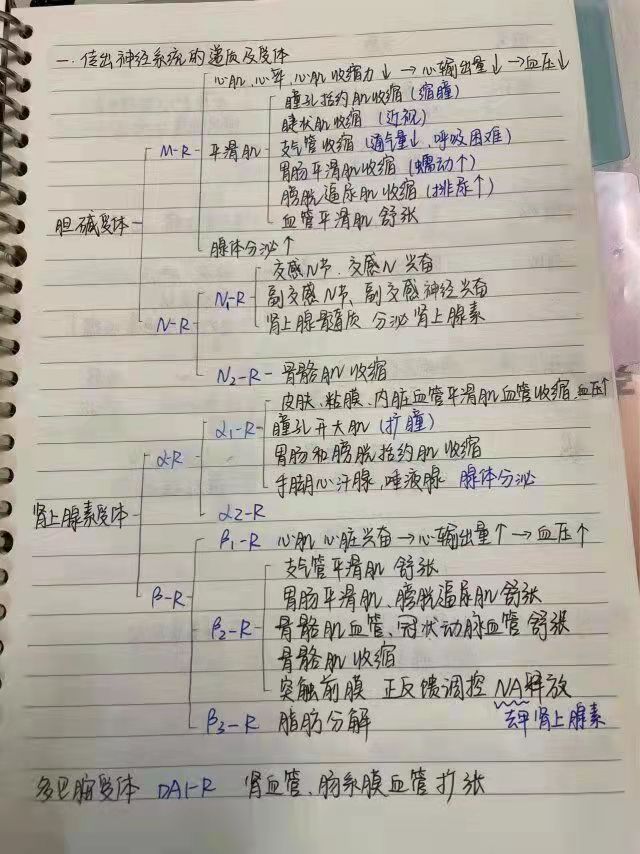 一. 传出神经系统的递质及受体
心肌、心率、心肌收缩力↓ → 心输出量↓ → 血压↓
瞳孔括约肌收缩 (缩瞳)
睫状肌收缩 (近视)
M-R 平滑肌 支气管收缩 (通气量↓、呼吸困难)
胃肠平滑肌收缩 (蠕动↑)
膀胱逼尿肌收缩 (排尿↑)
血管平滑肌 舒张
胆碱受体
腺体分泌↑
交感N节、交感N 兴奋
N₁-R 副交感N节、副交感神经兴奋
N-R 肾上腺髓质 分泌肾上腺素
N₂-R - 骨骼肌 收缩
皮肤、粘膜、内脏血管平滑肌血管收缩,血压↑
α₁-R 瞳孔开大肌 (扩瞳)
α-R 胃肠和膀胱括约肌收缩
手脚心汗腺,唾液腺 腺体分泌
肾上腺素受体 α2-R
β₁-R 心肌 心脏兴奋→心输出量↑→血压↑
支气管平滑肌 舒张
β-R 胃肠平滑肌、膀胱逼尿肌舒张
β₂-R 骨骼肌血管、冠状动脉血管 舒张
骨骼肌收缩
突触前膜 正反馈调控 NA释放
β₃-R 脂肪分解 去甲肾上腺素
多巴胺受体 DA1-R 肾血管、肠系膜血管扩张